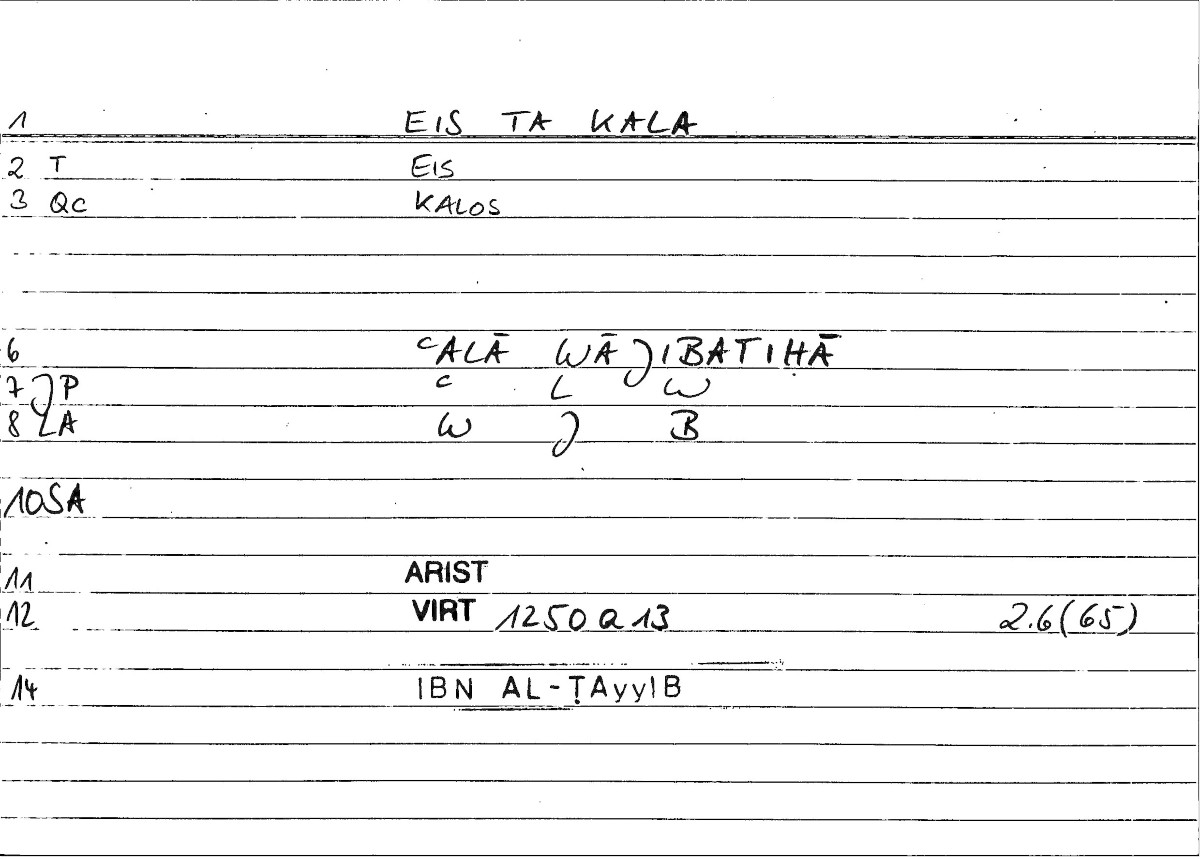 1 EIS TA KALA
2 T EIS
3 Qc KALOS
6 ᶜALĀ WĀJIBATIHĀ
7 JP ᶜ L W
8 LA W J B
10SA
11 ARIST
12 VIRT 1250 a 13 2.6(65)
14 IBN AL-ṬAyyIB